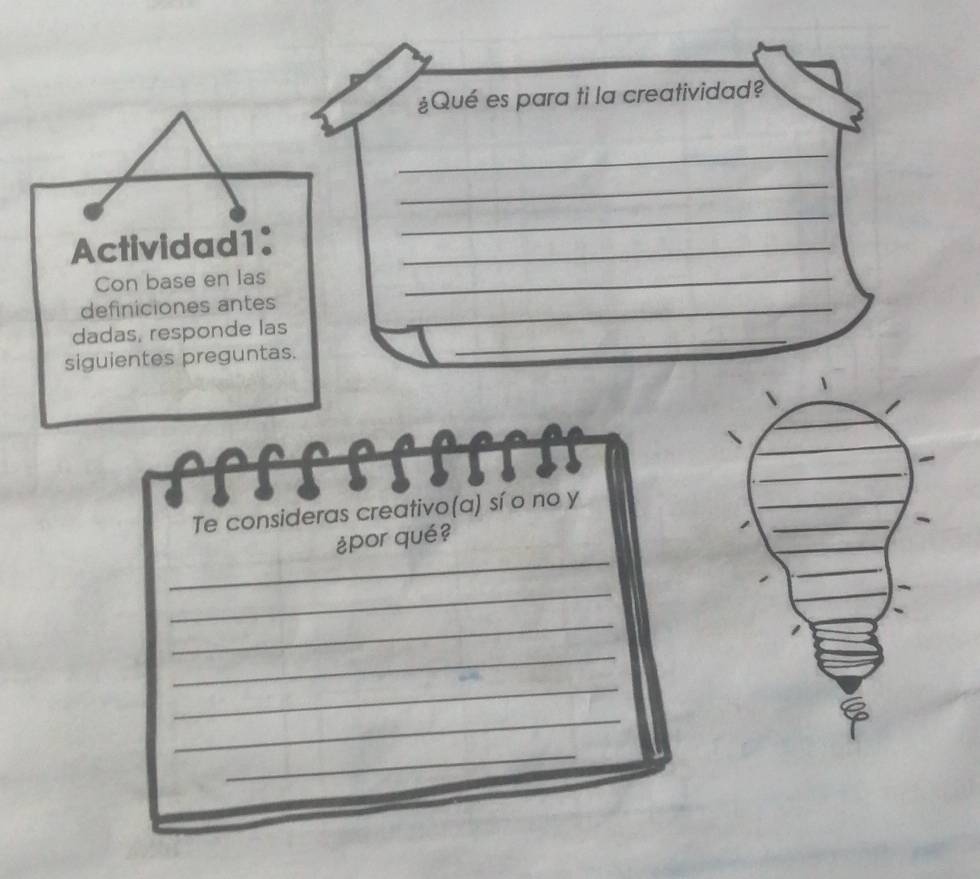 Actividad1:
Con base en las
definiciones antes
dadas, responde las
siguientes preguntas.
¿Qué es para ti la creatividad?
Te consideras creativo(a) sí o no y
¿por qué?